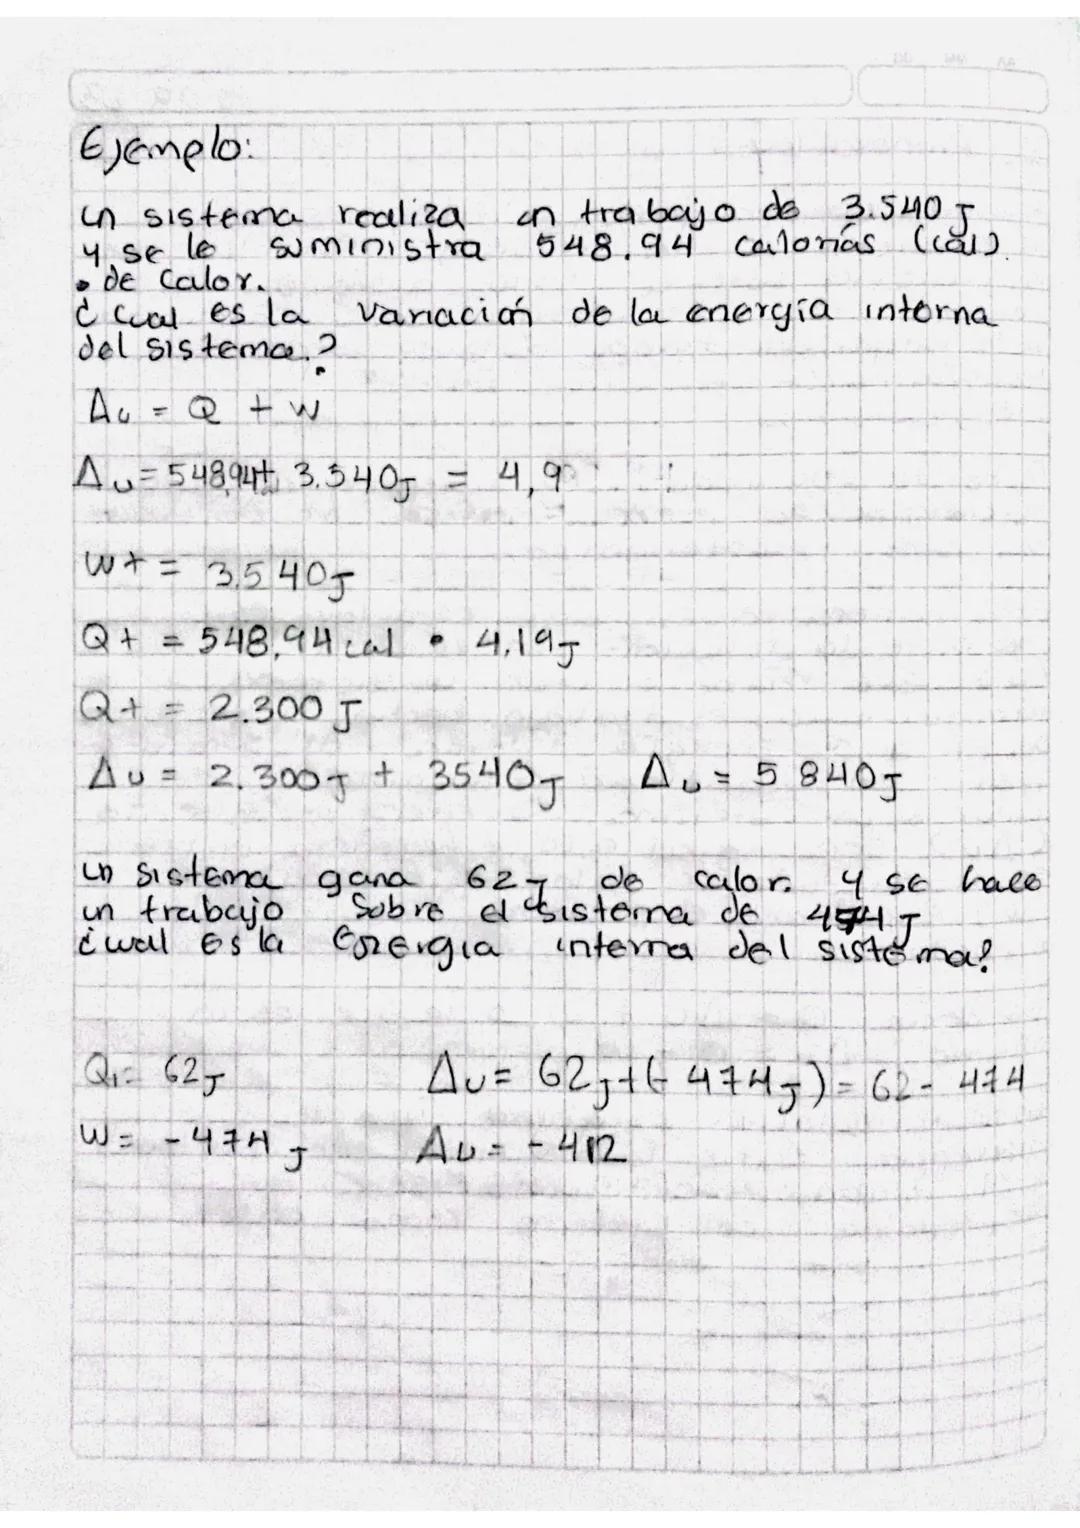 Ejemplo:
un sistema realiza un trabajo de 3.540 J
y se le suministra 548.94 calorías (cal)
• de calor.
¿cual es la variación de la energía interna
del sistema.?
Δu = Q + W
Δu = 548,94+ 3.540J = 4,9
W+ = 3.540J
Q+ = 548,94 cal • 4.19J
Q+ = 2.300 J
Δu = 2.300J + 3540J Δu = 5 840J
un sistema gana 62J de calor. y se hace
un trabajo sobre el sistema de 474 J
¿cual es la Energia interna del sistema?
Q+= 62J Δu= 62J+(-474J)= 62- 474
W= -474 J Δu= -412